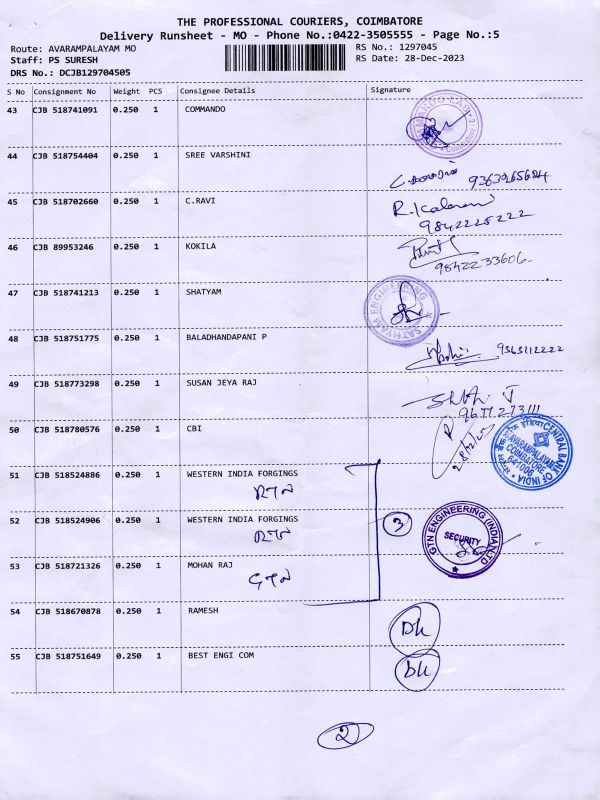 THE PROFESSIONAL COURIERS, COIMBATORE
Delivery Runsheet - MO - Phone No.:0422-3505555 - Page No.:5
Route: AVARAMPALAYAM MO
RS No.: 1297045
Staff: PS SURESH
RS Date: 28-Dec-2023
DRS No.: DCJB129704505
S No Consignment No Weight PCS Consignee Details Signature
43 CJB 518741091 0.250 1 COMMANDO
44 CJB 518754404 0.250 1 SREE VARSHINI
45 CJB 518702660 0.250 1 C.RAVI
9842225222
46 CJB 89953246 0.250 1 KOKILA
9842233606
47 CJB 518741213 0.250 1 SHATYAM
SATHYAM ENGINEERING
48 CJB 518751775 0.250 1 BALADHANDAPANI P
9363112222
49 CJB 518773298 0.250 1 SUSAN JEYA RAJ
50 CJB 518780576 0.250 1 CBI
CENTRAL BANK OF INDIA
AVARAMPALAYAM
COIMBATORE
641006
51 CJB 518524886 0.250 1 WESTERN INDIA FORGINGS
52 CJB 518524906 0.250 1 WESTERN INDIA FORGINGS
3
GTN ENGINEERING (INDIA) LTD
SECURITY
53 CJB 518721326 0.250 1 MOHAN RAJ
GTN
54 CJB 518670878 0.250 1 RAMESH
55 CJB 518751649 0.250 1 BEST ENGI COM
2